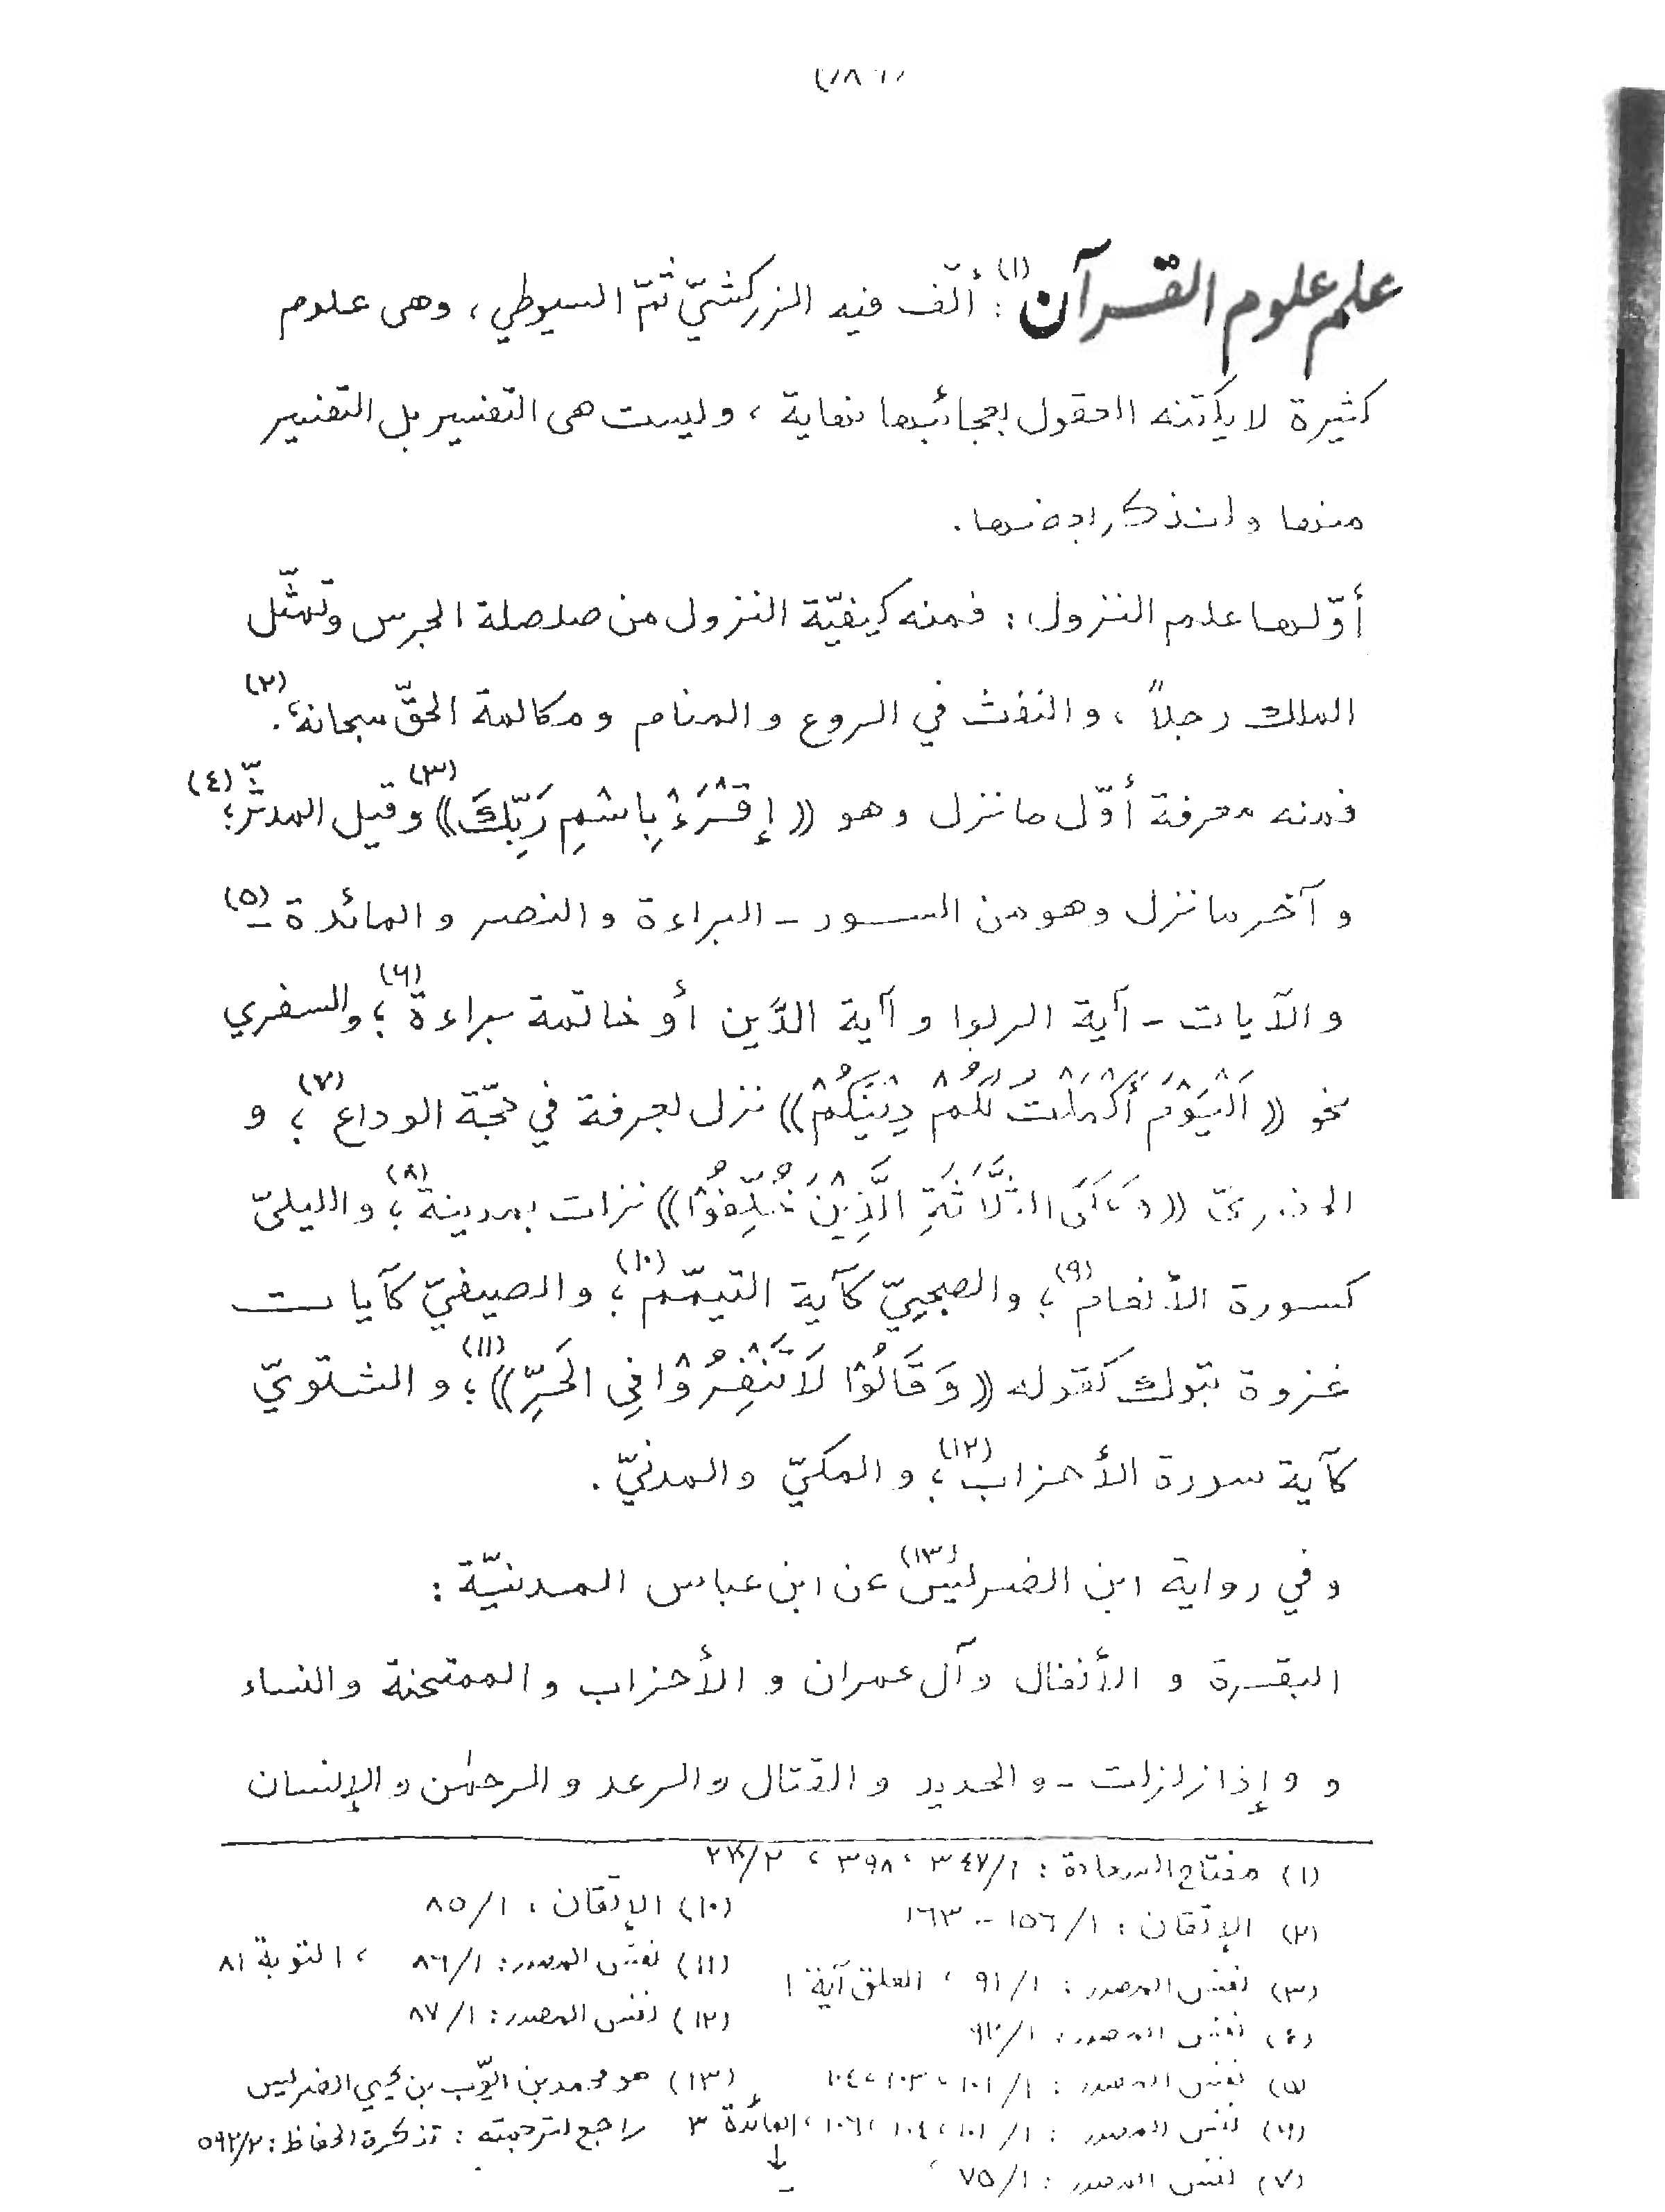 علم علوم القرآن (١): ألّف فيه الزركشيّ ثمّ السيوطي، وهى علوم
كثيرة لا يكتنه العقول بعجائبها نهاية، وليست هى التفسير بل التفسير
منها ولنذكر بعضها.
أوّلها علم النزول: فمنه كيفيّة النزول من صلصلة الجرس وتمثّل
الملك رجلاً، والنفث في الروع والمنام ومكالمة الحقّ سبحانه (٢).
فمنه معرفة أوّل ما نزل وهو ((إِقْرَءْ بِاسْمِ رَبِّكَ)) (٣) وقيل المدثّر (٤)؛
و آخر ما نزل وهو من السور - البراءة والنصر والمائدة - (٥)
و الآيات - آية الربوا وآية الدَّين أو خاتمة براءة (٦)؛ والسفري
نحو ((اَلْيَوْمَ أَكْمَلْتُ لَكُمْ دِيْنَكُمْ)) نزل بعرفة في حجّة الوداع (٧)؛ و
الحضريّ ((وَعَلَى الثَّلَاثَةِ الَّذِيْنَ خُلِّفُوْا)) نزلت بمدينة (٨)؛ والليليّ
كسورة الأنعام (٩)؛ والصبحيّ كآية التيمّم (١٠)؛ والصيفيّ كآيات
غزوة تبوك كقوله ((وَقَالُوْا لَا تَنْفِرُوْا فِى الحَرِّ)) (١١)؛ والشتويّ
كآية سورة الأحزاب (١٢)؛ والمكيّ والمدنيّ.
وفي رواية ابن الضريس (١٣) عن ابن عباس المدنيّة:
البقرة و الأنفال وآل عمران و الأحزاب و الممتحنة والنساء
و وإذا زلزلت - و الحديد و القتال والرعد و الرحمٰن والإنسان
(١) مفتاح السعادة: ١/٣٤٧، ٣٩٨،
(٢) الإتقان: ١/١٥٦ - ١٦٣
(٣) نفس المصدر: ١/٩١، العلق آية ١
(٤) نفس المصدر:
(٥) نفس المصدر: ١/١٠١، ١٠٣، ١٠٤
(٦) نفس المصدر: ١/١٠١، ١٠٤، ١٠٦، المائدة ٣
(٧) نفس المصدر: ١/٧٥
(١٠) الإتقان: ١/٨٥
(١١) نفس المصدر: ١/٨٦، التوبة ٨١
(١٢) نفس المصدر: ١/٨٧
(١٣) هو محمد بن ايّوب بن يحيي الضريس
راجع لترجمته: تذكرة الحفاظ: ٢/٥٩٢